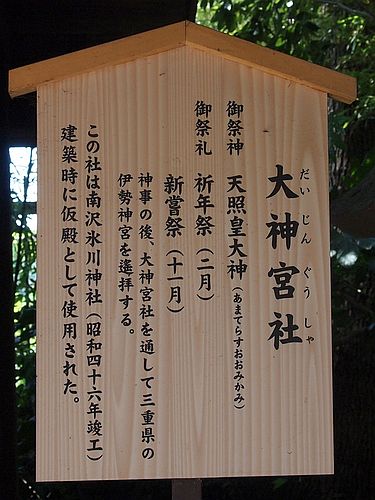 だいじんぐうしゃ
大神宮社
御祭神 天照皇大神(あまてらすおおみかみ)
御祭礼 祈年祭(二月)
新嘗祭(十一月)
神事の後、大神宮社を通して三重県の
伊勢神宮を遙拝する。
この社は南沢氷川神社(昭和四十六年竣工)
建築時に仮殿として使用された。